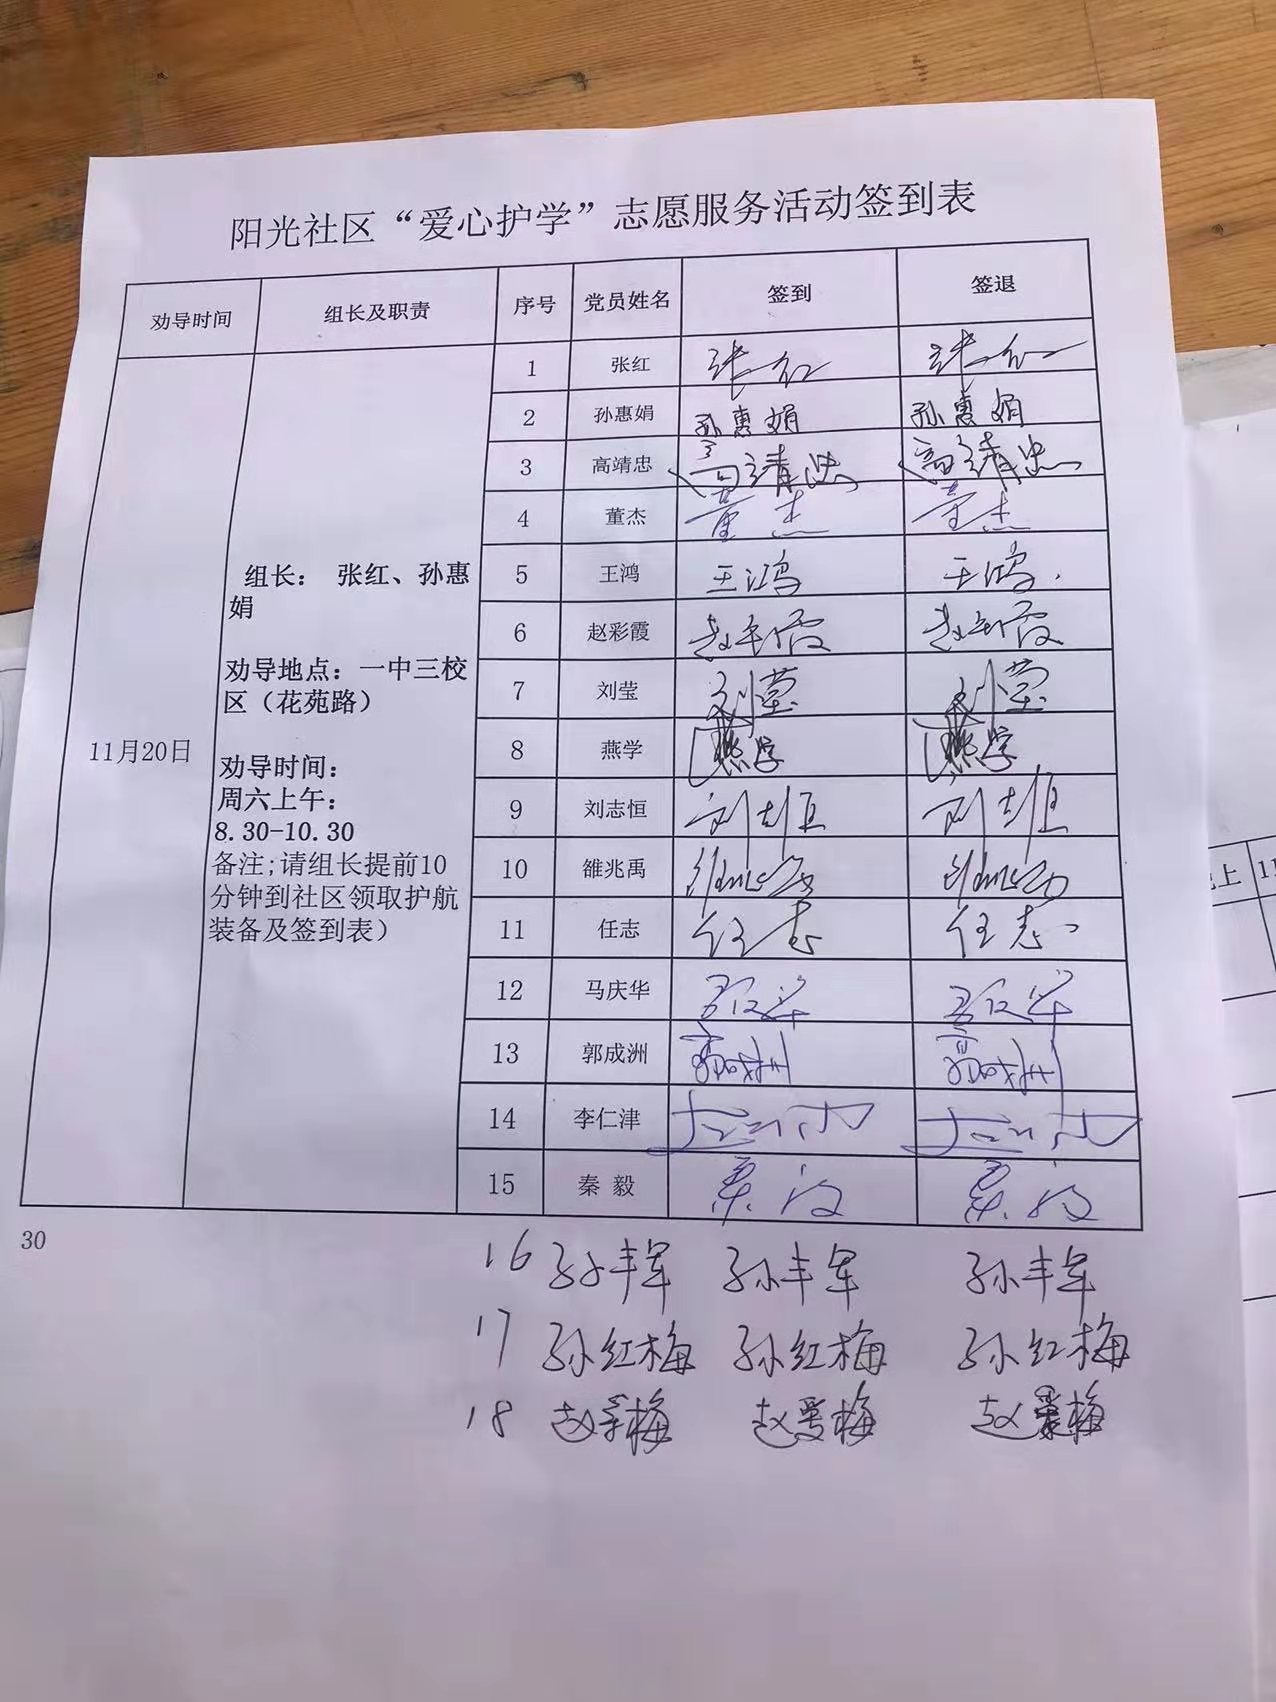 阳光社区“爱心护学”志愿服务活动签到表
劝导时间 组长及职责 序号 党员姓名 签到 签退
11月20日
组长： 张红、孙惠
娟
劝导地点：一中三校
区（花苑路）
劝导时间：
周六上午：
8.30-10.30
备注;请组长提前10
分钟到社区领取护航
装备及签到表）
1 张红 张红 张红
2 孙惠娟 孙惠娟 孙惠娟
3 高靖忠 高靖忠 高靖忠
4 董杰 董杰 董杰
5 王鸿 王鸿 王鸿
6 赵彩霞 赵彩霞 赵彩霞
7 刘莹 刘莹 刘莹
8 燕学 燕学 燕学
9 刘志恒 刘志恒 刘志恒
10 雒兆禹
11 任志 任志 任志
12 马庆华 马庆华 马庆华
13 郭成洲 郭成洲 郭成洲
14 李仁津
15 秦 毅 秦毅 秦毅
30
16 孙丰军 孙丰军 孙丰军
17 孙红梅 孙红梅 孙红梅
18 赵爱梅 赵爱梅 赵爱梅
上 1